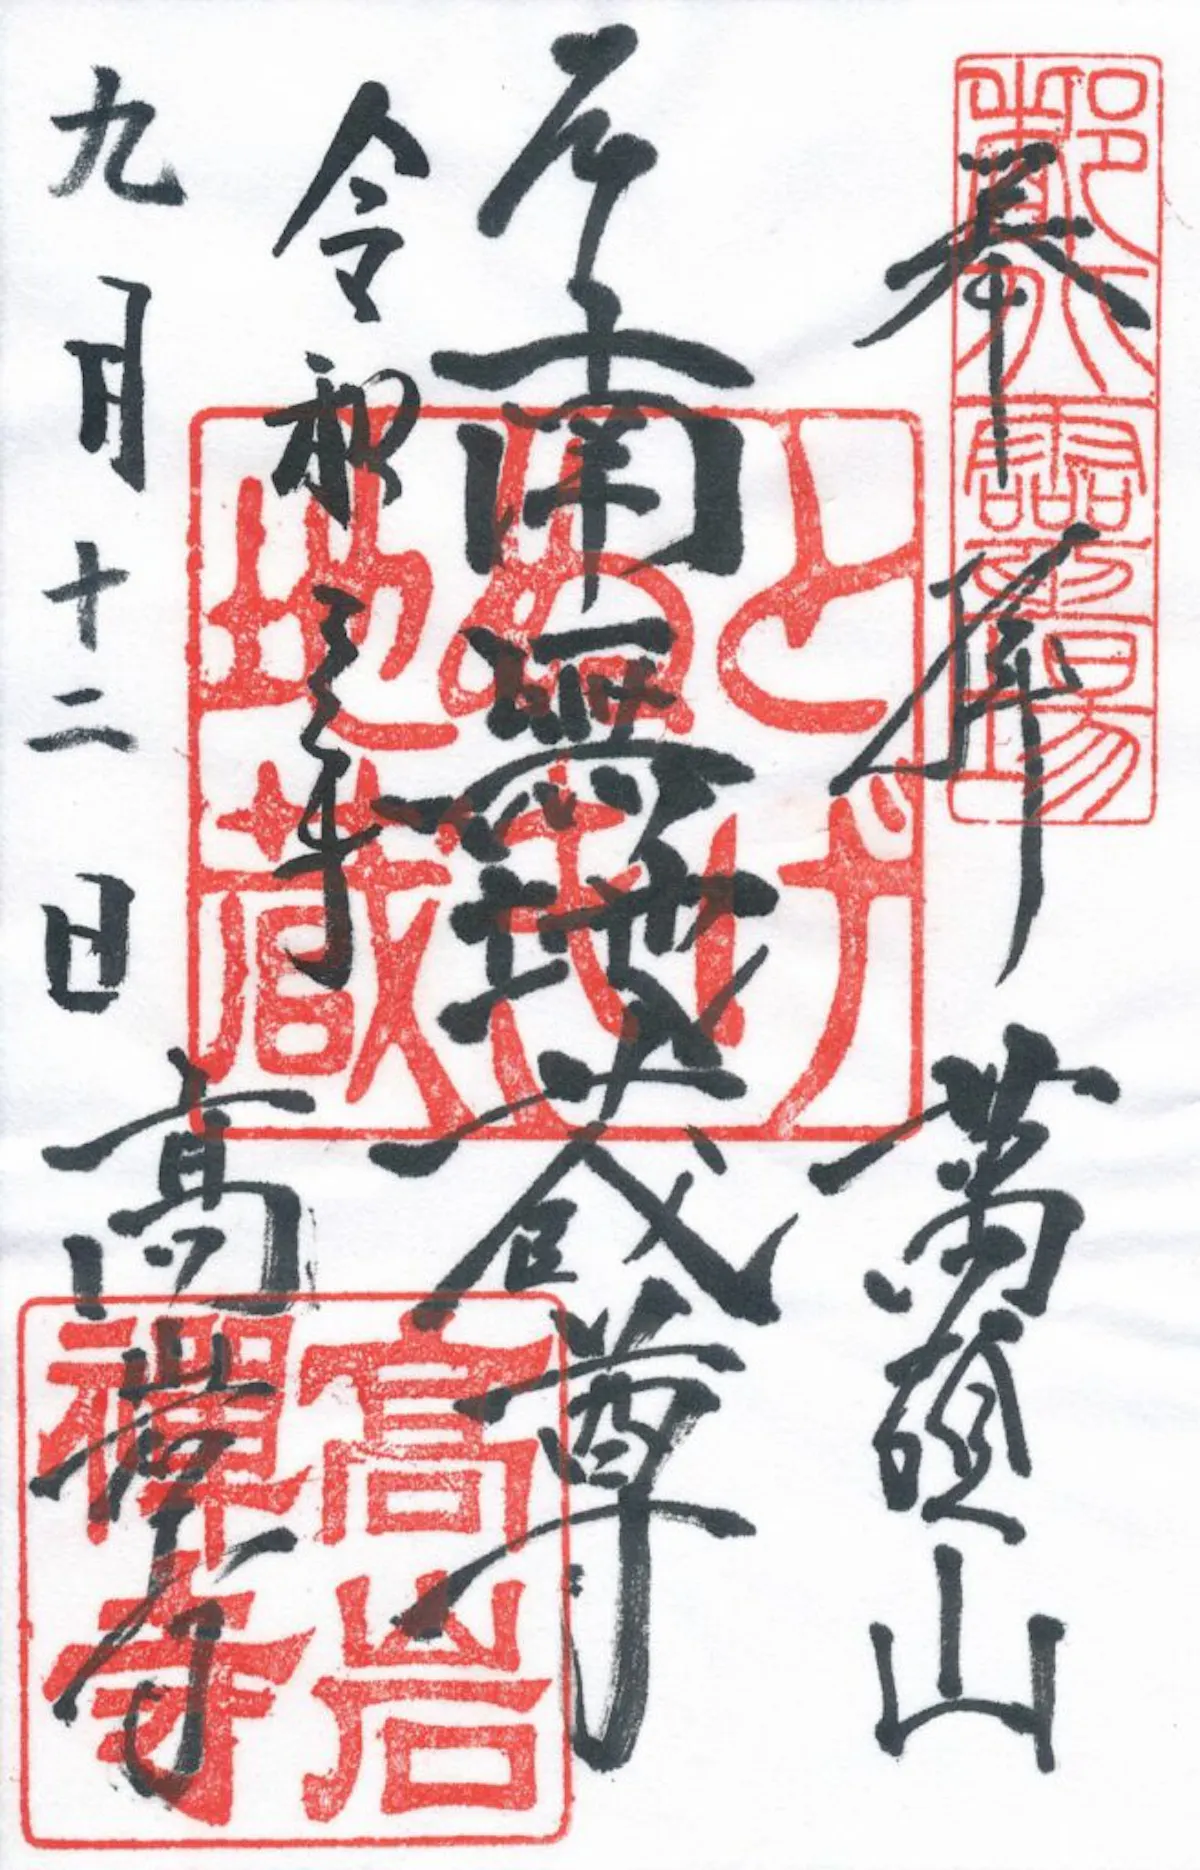 奉拝
萬頂山
南無地蔵尊
令和三年
九月十二日
高岩寺
とげ
ぬき
地蔵
高岩
禪寺